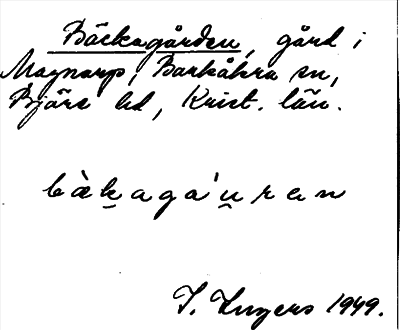 Bäckagården, gård i
Magnarp, Barkåkra sn,
Bjäre hd, Krist. län.
bὰk̮aga'u̮ren
I. Ingers 1949.